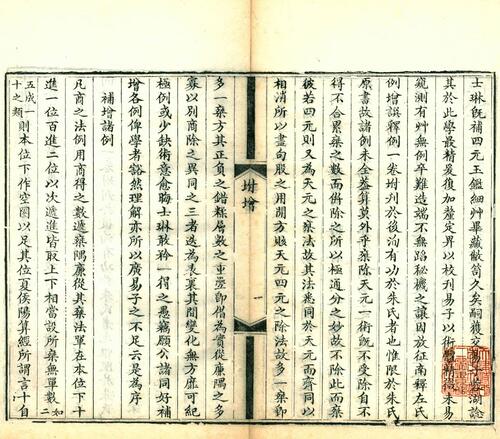 士琳旣補四元玉鑑細艸畢藏敝笥久矣嗣獲交易子論
其於此學最精爰復加釐定界以校刊易子以術朱易
窺測有艸無例卒難造端不無蹈秘機之譏因放征南釋左氏
例增譔釋例一卷坿刊於後洵有功於朱氏者也惟限於朱氏
原書故諸例未全蓋筭莫外乎乘除天元一術旣不受除自不
得不合累乘之數而倂除之所以極通分之妙故不除此而乘
彼若四元則又爲天元之乘法故其法悉同於天元而齊同以
相消所以盡句股之用開方賅天元四元之除法故多一乘卽
坿增
一
多一乘方其正負之錯糅層數之重壘卽借爲實從廉隅之多
寡以別商除異同之三者迭爲表裏其間變化無方靡可紀
極例或少缺術意愈晦士琳敢矜一得之愚竊願公諸同好補
增各例俾學者豁然理解亦所以廣易子之不足云是爲序
補增諸例
凡商之法例用商得之數遞乘隅廉從其乘法單在本位下十
進一位百進二位以次遞進皆取上下相當設所乘無單數如
五成一十之類則本位下作空圈以足其位夏侯陽算經所謂言十自